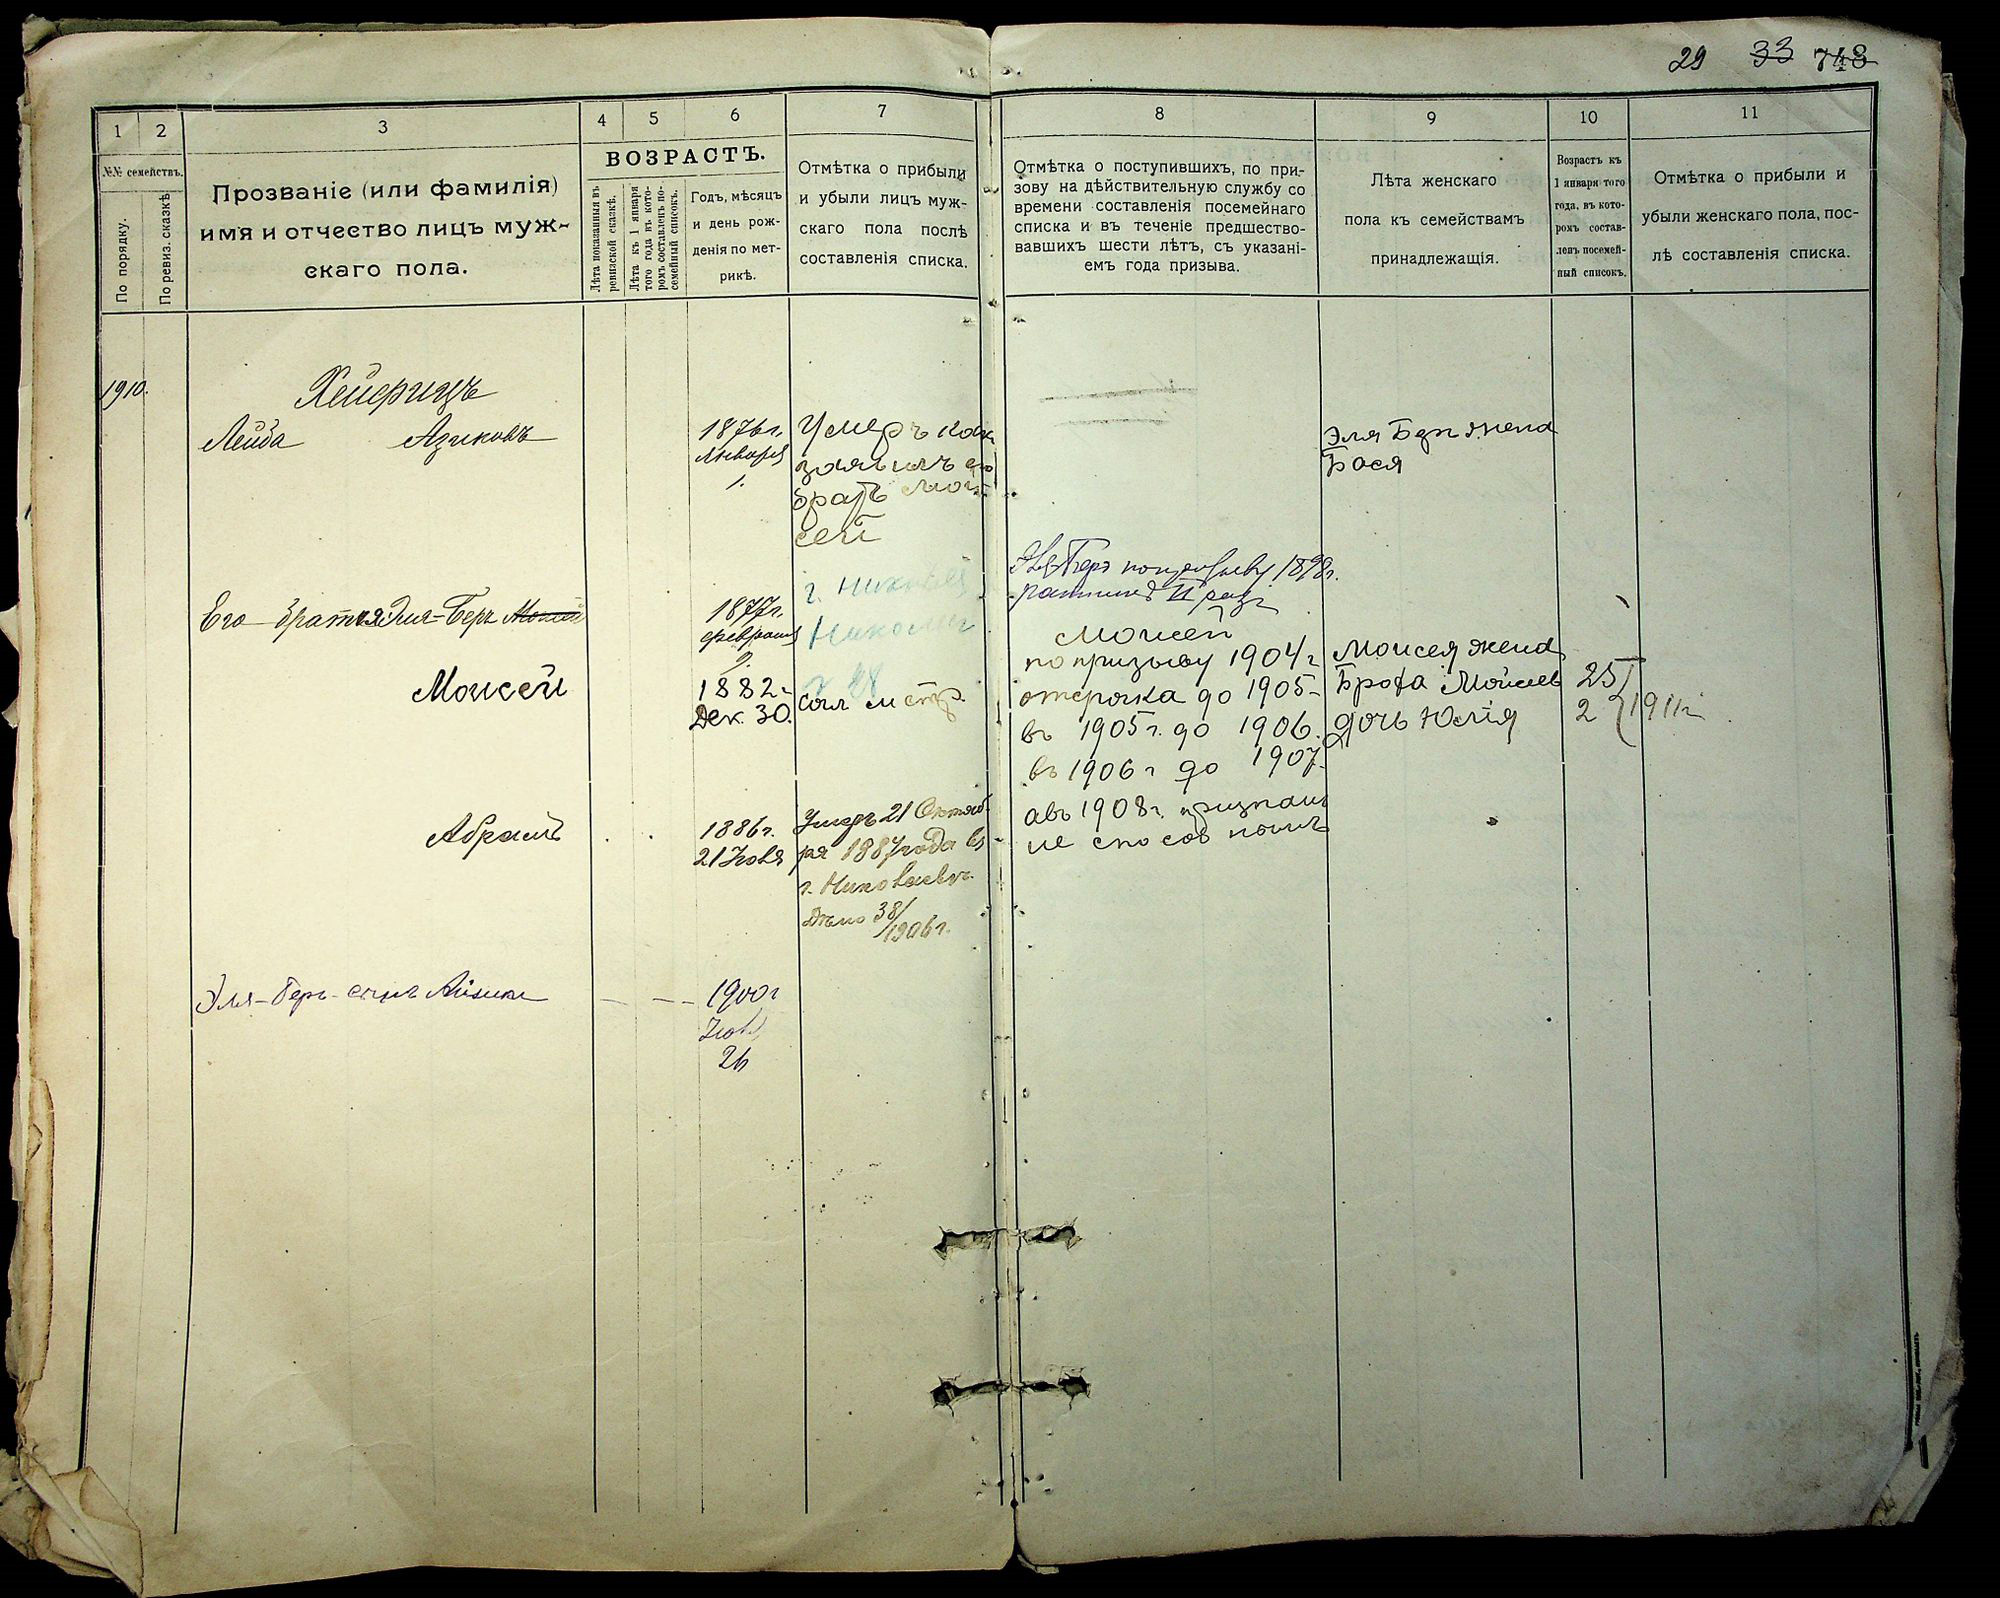 29 33 748
1 2 3 4 5 6 7 8 9 10 11
№№ семействъ.
По порядку.
По ревиз. сказкѣ
Прозваніе (или фамилія)
имя и отчество лицъ муж-
скаго пола.
ВОЗРАСТЪ.
Лѣта показанныя въ
ревизской сказкѣ.
Лѣта къ 1 января
того года въ кото-
ромъ составленъ по-
семейный списокъ.
Годъ, мѣсяцъ
и день рож-
денія по мет-
рикѣ.
Отмѣтка о прибыли
и убыли лицъ муж-
скаго пола послѣ
составленія списка.
Отмѣтка о поступившихъ, по при-
зову на дѣйствительную службу со
времени составленія посемейнаго
списка и въ теченіе предшество-
вавшихъ шести лѣтъ, съ указані-
емъ года призыва.
Лѣта женскаго
пола къ семействамъ
принадлежащія.
Возрастъ къ
1 января того
года, въ кото-
ромъ состав-
ленъ посемей-
ный списокъ.
Отмѣтка о прибыли и
убыли женскаго пола, пос-
лѣ составленія списка.
1910.
Лейба Азиковъ
1876 г.
Января
1.
Умеръ как
заявилъ его
братъ Мои-
сей
Эля Бера жена
Бася
Его братья Эля-Беръ Моисей
1877 г.
февраля
9.
г. Николаев
Николаев
1898 г.
Моисей
1882 г
Дек. 30.
Моисей
по призыву 1904 г
отсрочка до 1905
въ 1905 г. до 1906.
въ 1906 г до 1907.
а въ 1908 г. признан
не способнымъ
Моисея жена
Броха Мойсеев
дочь Юлія
25
2
1911 г
Абрамъ
1886 г.
21 Іюля
Умеръ 21 Октяб-
ря 1887 года въ
г. Николаевѣ.
Дѣло 38/1906 г.
Эля-Беръ сынъ Айзика
1900 г
26